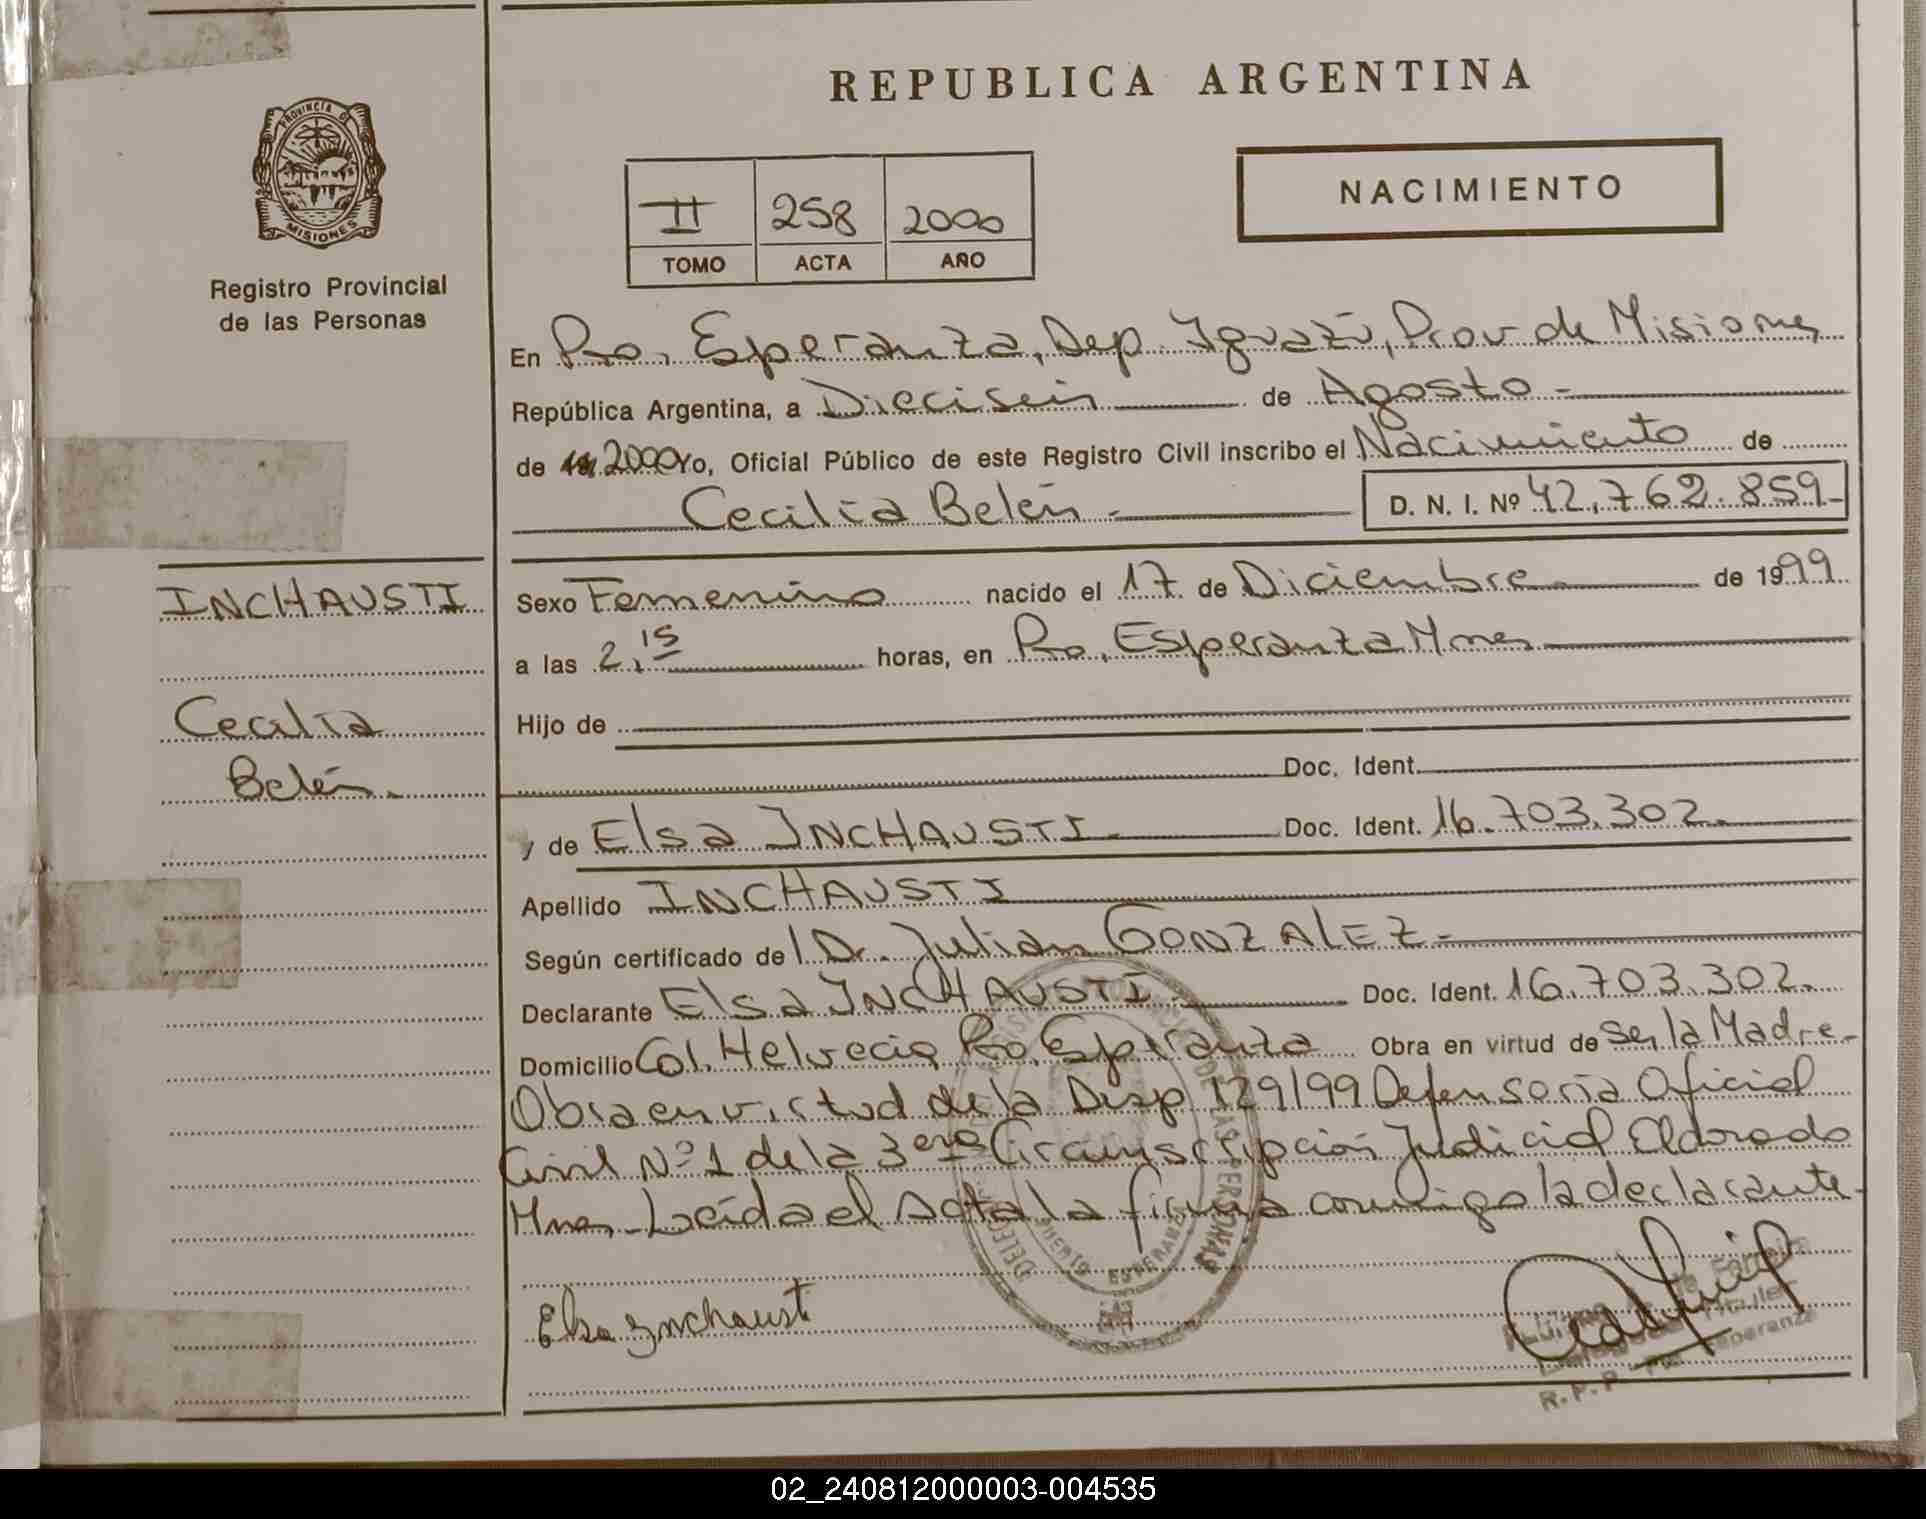 REPUBLICA ARGENTINA
NACIMIENTO
PROVINCIA DE
MISIONES
Registro Provincial
de las Personas
II 258 2000
TOMO ACTA AÑO
En Pto. Esperanza, Dep. Iguazú, Prov de Misiones
República Argentina, a Dieciseis de Agosto -
de 19 2000 Yo, Oficial Público de este Registro Civil inscribo el Nacimiento de
Cecilia Belén - D. N. I. Nº 42.762.859-
INCHAUSTI
Cecilia
Belén.
Sexo Femenino nacido el 17 de Diciembre de 1999
a las 2,15 horas, en Pto. Esperanza Mnes
Hijo de
Doc. Ident.
y de Elsa INCHAUSTI. Doc. Ident. 16.703.302.
Apellido INCHAUSTI
Según certificado de l Dr. Julian GONZALEZ.-
Declarante Elsa INCHAUSTI. Doc. Ident. 16.703.302.
Domicilio Col. Helvecia, Pto Esperanza Obra en virtud de ser la Madre.-
Obra en virtud de la Disp 129/99 Defensoria Oficial
Civil Nº 1 de la 3era Circunscripción Judicial Eldorado
Mnes. Leída el Acta la firma conmigo la declarante.
Elsa Ynchausti
PUERTO ESPERANZA
DE LAS PERSONAS
R.P.P - Pto Esperanza
02_240812000003-004535